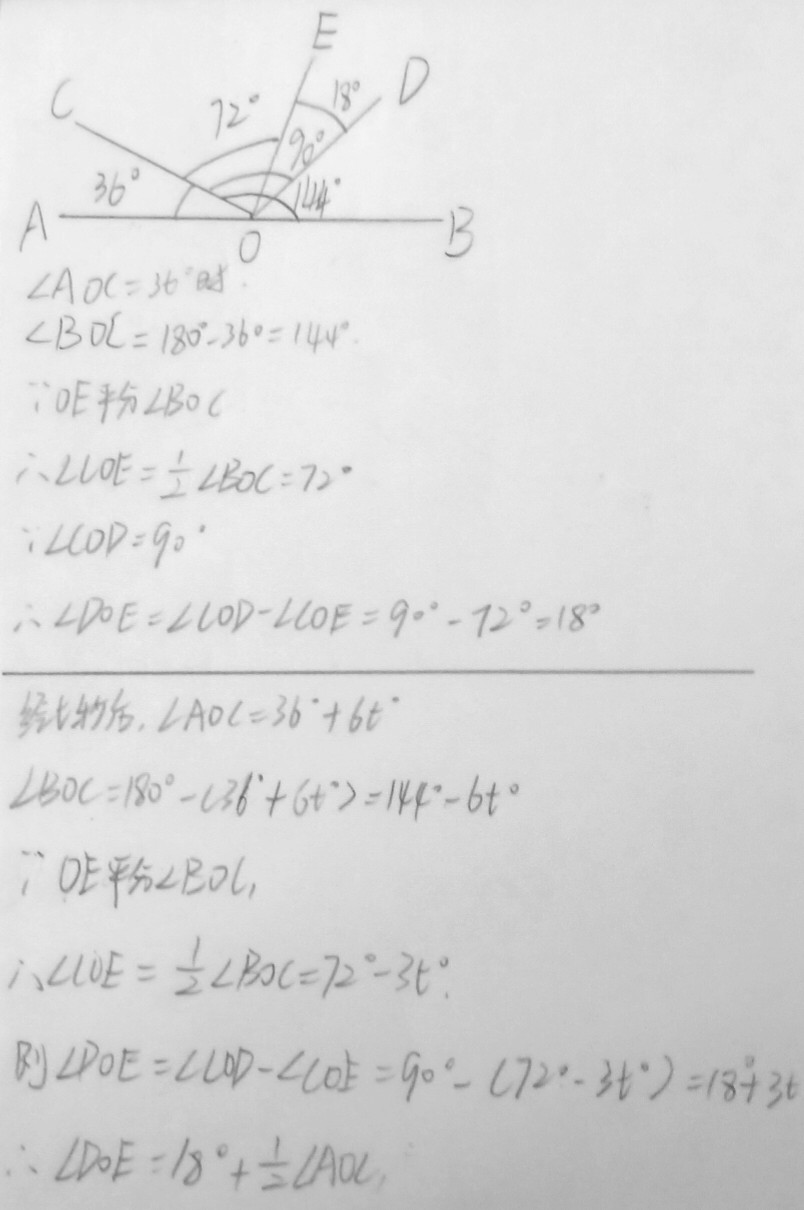 E
D
C
18°
72°
90°
36°
144°
A
O
B
∠AOC=36°时.
∠BOC=180°-36°=144°.
∵OE平分∠BOC
∴∠COE=\frac{1}{2}∠BOC=72°
∵∠COD=90°
∴∠DOE=∠COD-∠COE=90°-72°=18°
经t秒后,∠AOC=36°+6t°
∠BOC=180°-(36°+6t°)=144°-6t°
∵OE平分∠BOC,
∴∠COE=\frac{1}{2}∠BOC=72°-3t°.
则∠DOE=∠COD-∠COE=90°-(72°-3t°)=18°+3t
∴∠DOE=18°+\frac{1}{2}∠AOC,